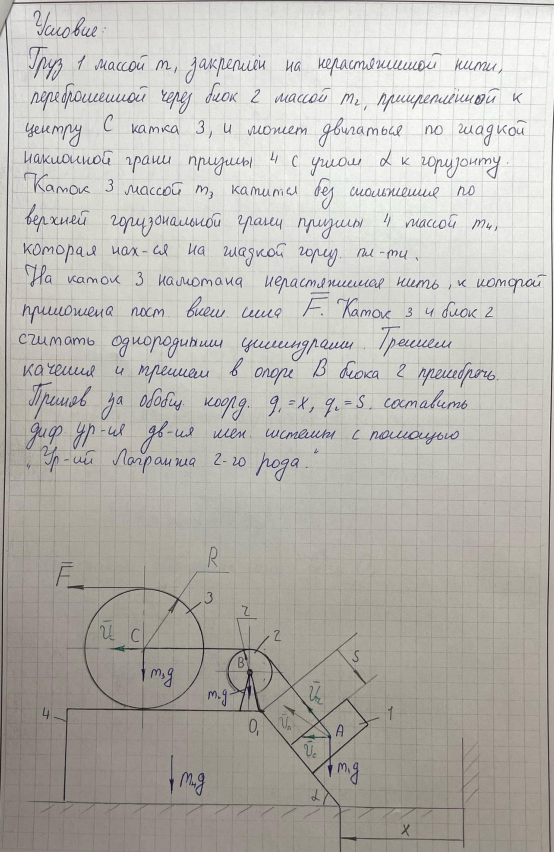 Условие:
Груз 1 массой m₁ закреплён на нерастяжимой нити,
переброшенной через блок 2 массой m₂, прикреплённой к
центру C катка 3, и может двигаться по гладкой
наклонной грани призмы 4 с углом α к горизонту.
Каток 3 массой m₃ катится без скольжения по
верхней горизональной грани призмы 4 массой m₄,
которая нах-ся на гладкой гориз. пл-ти.
На каток 3 намотана нерастяжимая нить, к которой
приложена пост. внеш сила F̅. Каток 3 и блок 2
считать однородными цилиндрами. Трением
качения и трением в опоре B блока 2 пренебречь.
Приняв за обобщ. коорд. q₁=x, q₂=S. составить
диф. ур-ия дв-ия мех. системы с помощью
"Ур-ий Лагранжа 2-го рода."
R
F̅
3
C
m₃g
2
2
B
m₂g
O₁
S
1
A
m₁g
4
m₄g
α
x